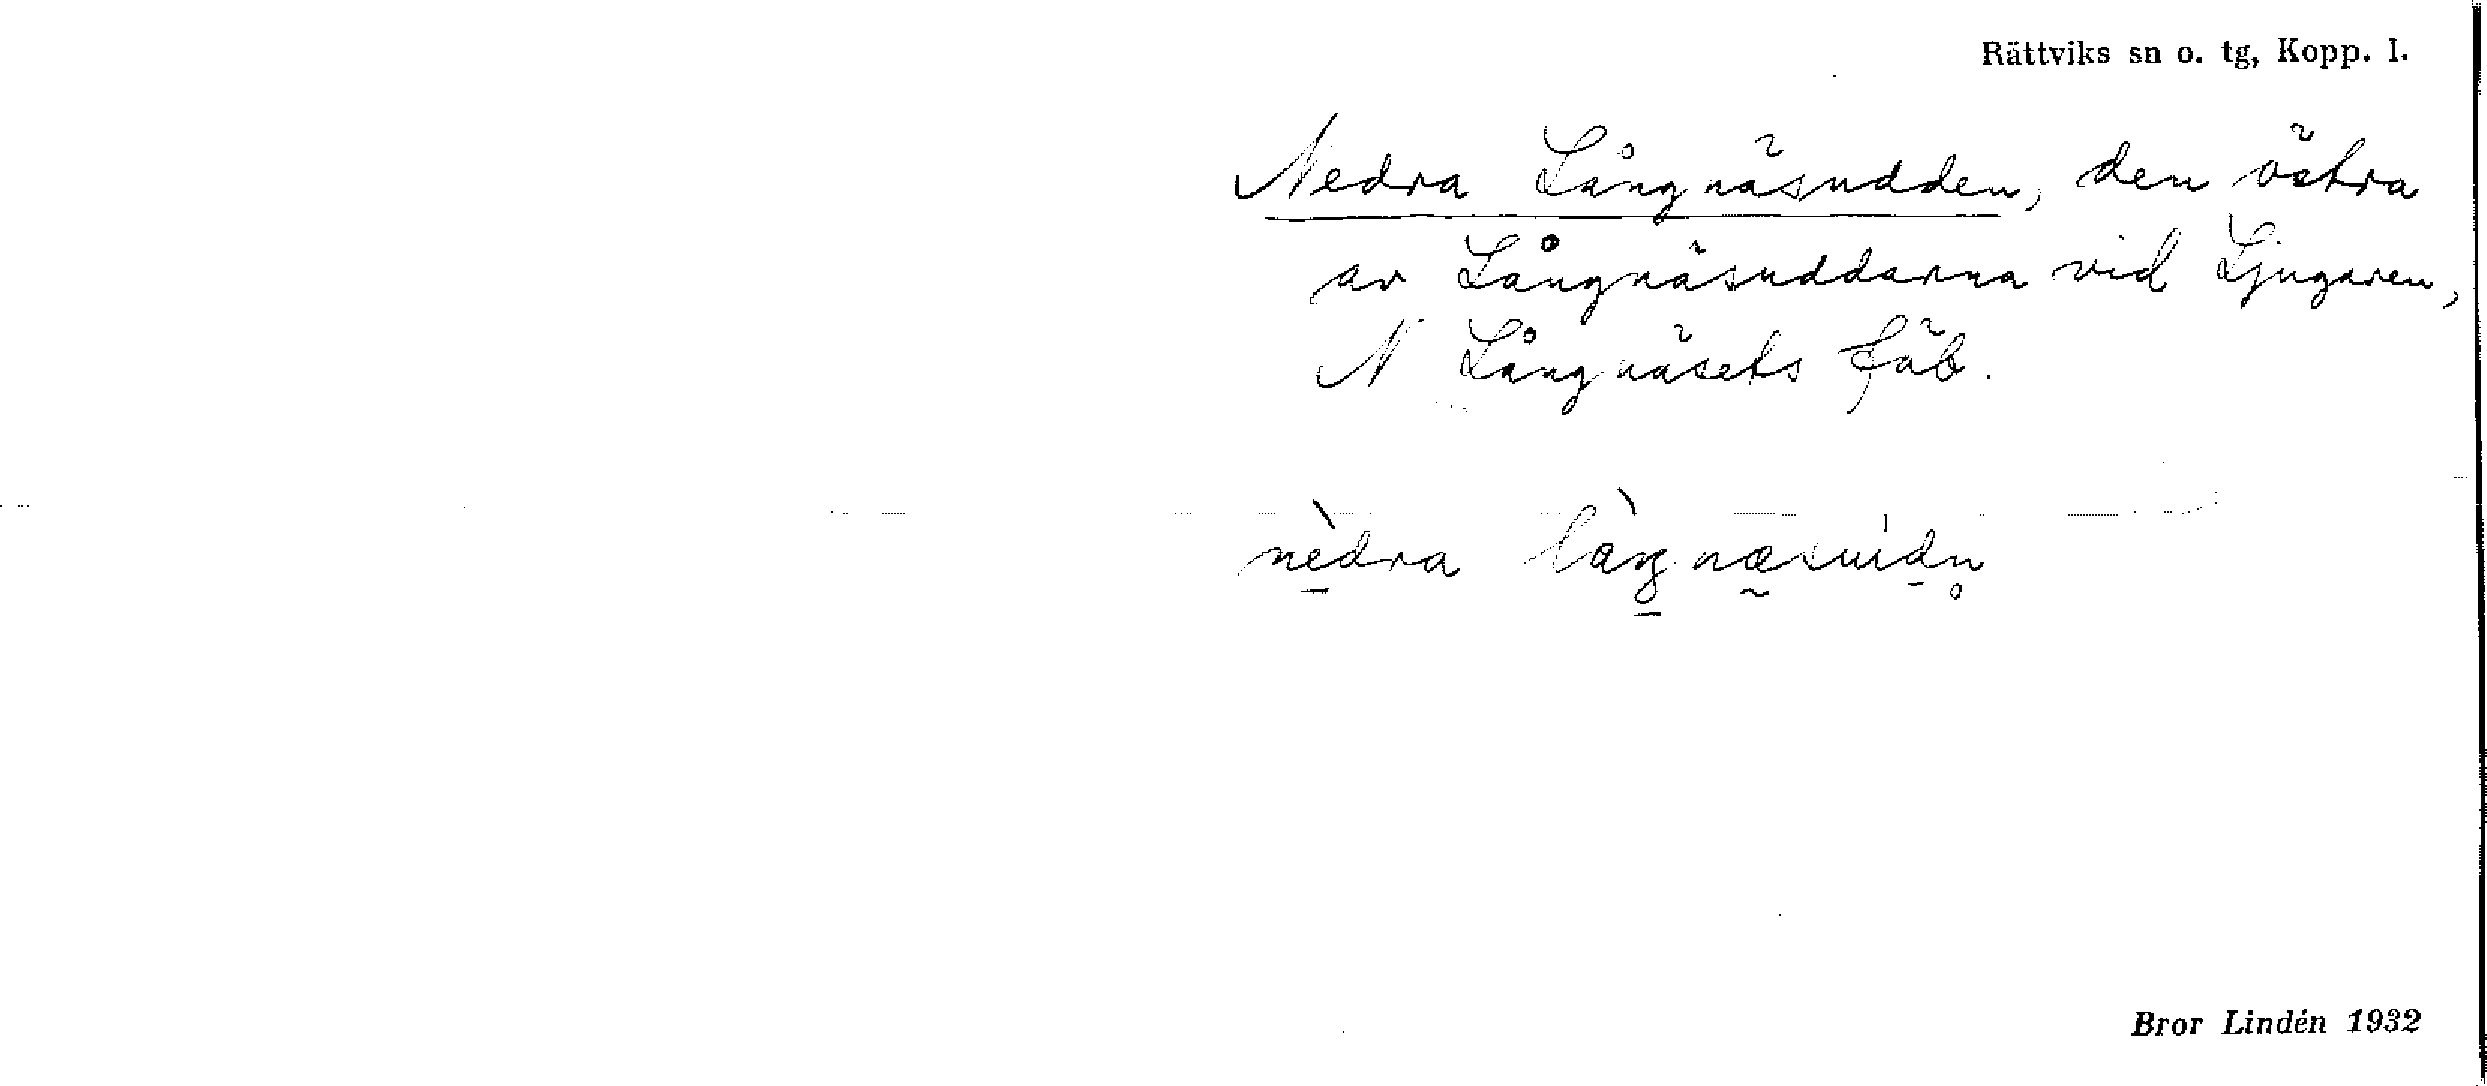 Rättviks sn o. tg, Kopp. l.
Nedra Långnäsudden, den östra
av Långnäsuddarna vid Ljugaren,
N Långnäsets fäb.
nèdra
Bror Lindén 1932